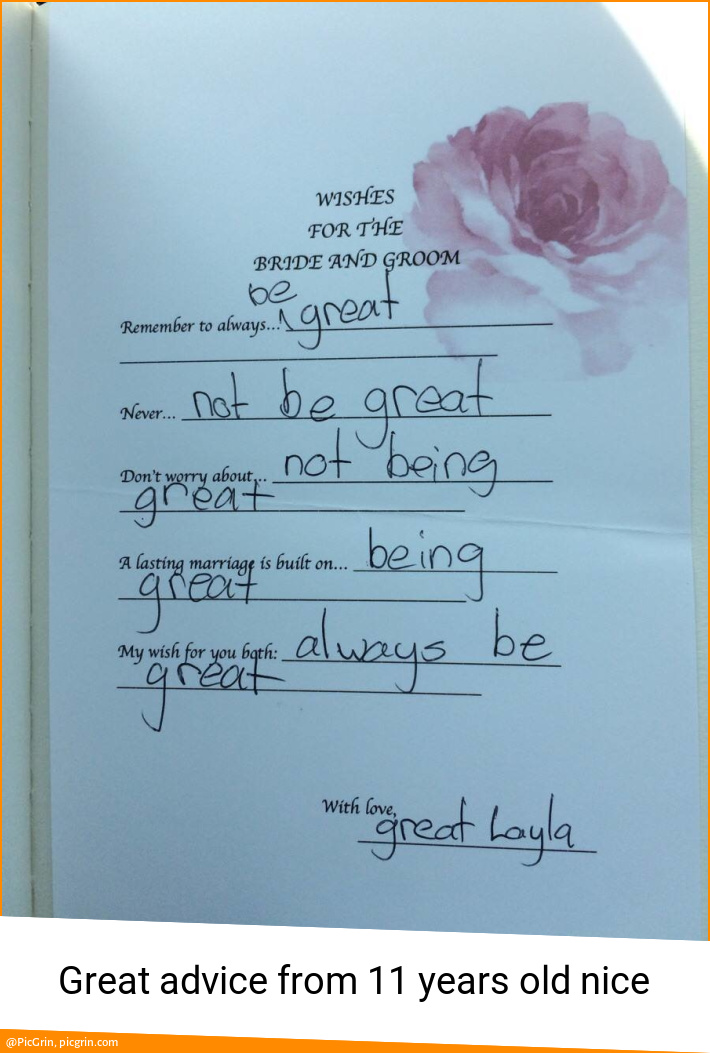 WISHES
FOR THE
BRIDE AND GROOM
be
Remember to always... great
Never... not be great
Don't worry about... not being
great
A lasting marriage is built on... being
great
My wish for you both: always be
great
With love,
great Layla
Great advice from 11 years old nice
@PicGrin, picgrin.com